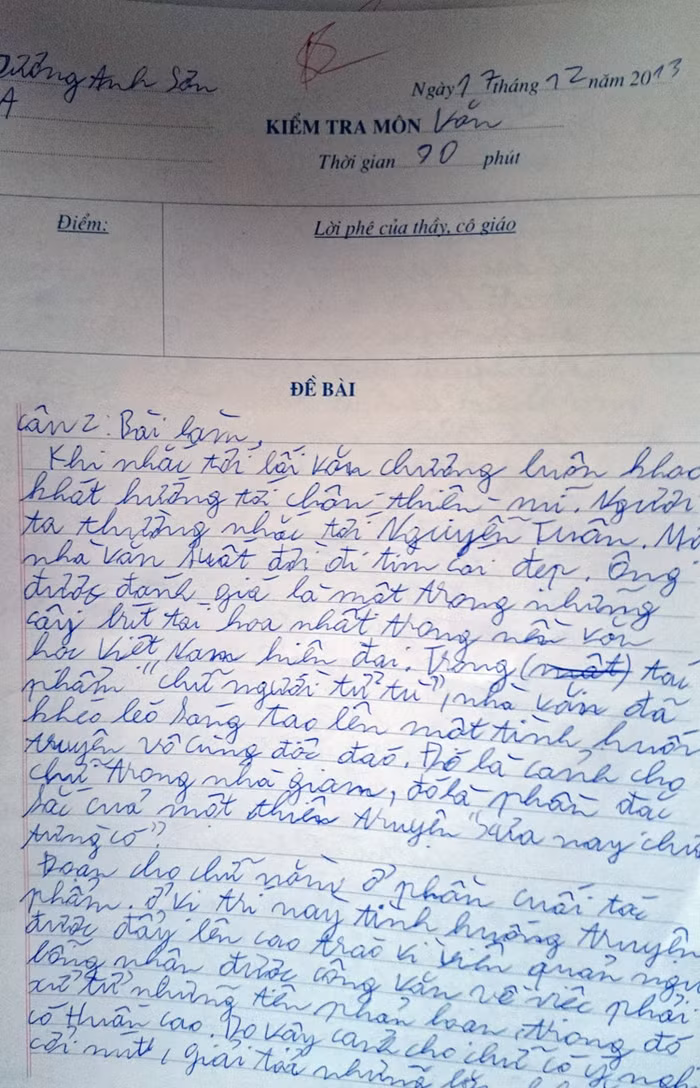 Dương Anh Sơn
A
Ngày 17 tháng 12 năm 2013
KIỂM TRA MÔN Văn
Thời gian 90 phút
Điểm:
Lời phê của thầy, cô giáo
ĐỀ BÀI
Câu 2: Bài làm,
Khi nhắc tới lối văn chương luôn khao
khát hướng tới chân - thiên - mĩ. Người
ta thường nhắc tới Nguyễn Tuân. Một
nhà văn suất đời đi tìm cái đẹp. Ông
được đánh giá là một trong những
cây bút tài hoa nhất trong nền văn
học Việt Nam hiện đại. Trong (một) tác
phẩm "chữ người tử tù", nhà văn đã
khéo léo sáng tạo lên một tình huống
truyện vô cùng độc đáo. Đó là cảnh cho
chữ trong nhà giam, đó là phần đặc
sắc của một thiên truyện "xưa nay chưa
từng có".
Đoạn cho chữ nằm ở phần cuối tác
phẩm. ở vị trí này tình huống truyện
được đẩy lên cao trào vì viên quản ngục
bỗng nhận được công văn về việc phải
xử tử những tên phản loạn trong đó
có Huấn Cao. Do vậy cảnh cho chữ có ý
cởi nút, giải tỏa những